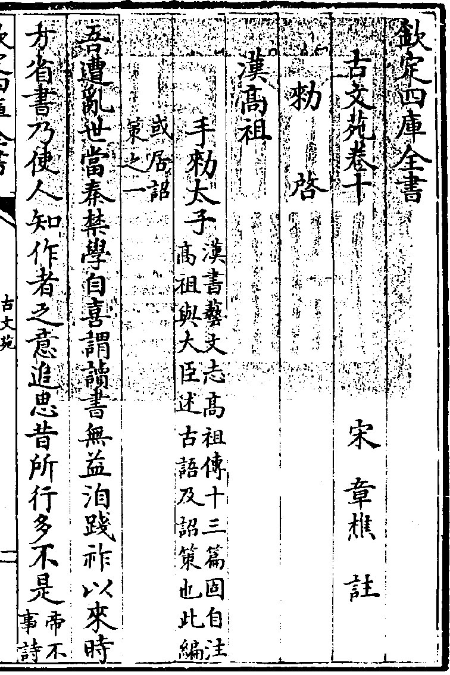 欽定四庫全書
古文苑卷十
宋 章樵 註
勅 啓
漢高祖
手勅太子
漢書藝文志高祖傳十三篇固自注
高祖與大臣述古語及詔策也此編
或居詔
策之一
吾遭亂世當秦禁學自喜謂讀書無益洎踐祚以來時
方省書乃使人知作者之意追思昔所行多不是
帝不
事詩
古文苑